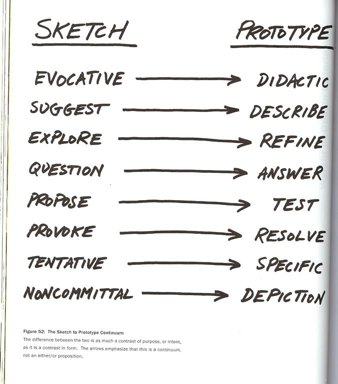 SKETCH PROTOTYPE
EVOCATIVE → DIDACTIC
SUGGEST → DESCRIBE
EXPLORE → REFINE
QUESTION → ANSWER
PROPOSE → TEST
PROVOKE → RESOLVE
TENTATIVE → SPECIFIC
NONCOMMITTAL → DEPICTION
Figure 52: The Sketch to Prototype Continuum
The difference between the two is as much a contrast of purpose, or intent,
as it is a contrast in form. The arrows emphasize that this is a continuum,
not an either/or proposition.